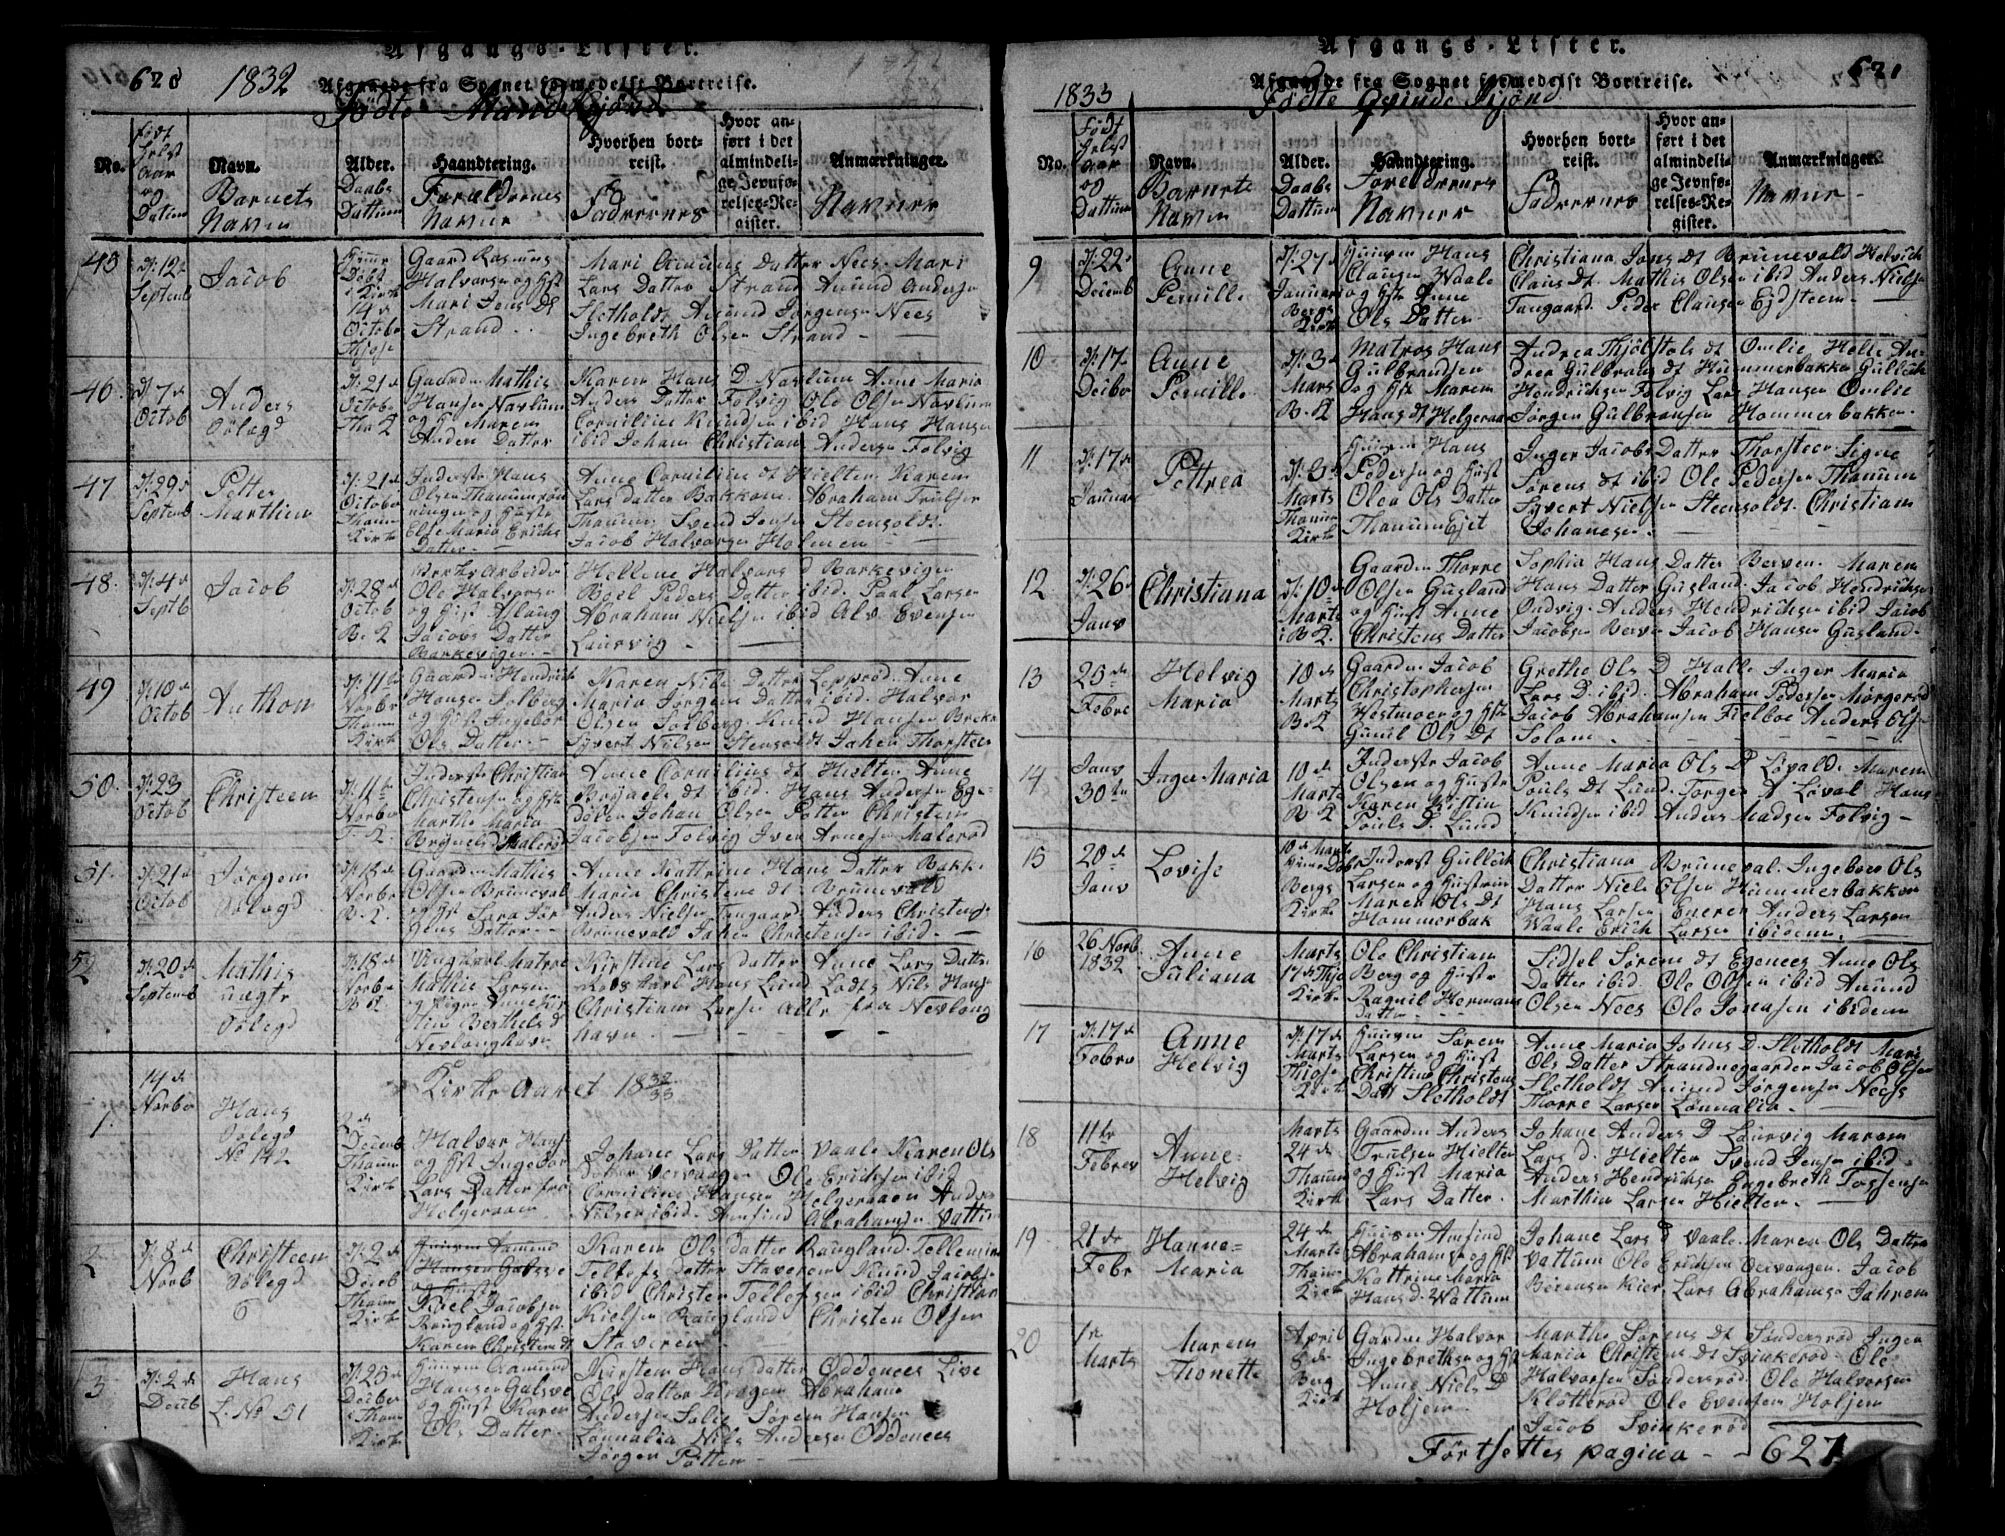 Afgangs-Lister.
620 1832 Afgaaede fra Sognet formedelst Bortreise.
Födte Mandkjönd
No.
Födt
Aar
og
Datum
Navn.
Barnets
Navn
Alder.
Daabs
Dattum
Haandtering.
Forældrenes
Navne
Hvorhen bort-
reist.
Faddernes
Hvor an-
ført i det
almindeli-
ge Jevnfø-
relses-Re-
gister.
Anmærkninger.
Navner
45
d: 12te
Septemb
Jacob
Hjemme
Döbt
i Kirk
14 d
Octobr
Thjose
Gaard Rasmus
Halvorsen og Hst
Mari Jens D
Strand
Mari Amunds Datter Nees. Mari
Lars Datter Strand Amund Andersen
Sletholdt Amund Jörgensen Nees
Ingebreth Olsen Strand
46
d: 7de
Octob
Anders
Sölegd
d: 21de
Octob
Gaardm Mathis
Hansen Navlum
og Hst Maren
Anders Datter
Karen Hans D. Navlum Anne Maria
Anders Datter Folvig Ole Olsen Navlum
Cornilius Knudsen ibid Hans Hansen
ibid Johan Christian Andersen Folvig
47
d: 29de
Septemb
Petter
Marthin
d: 21de
Octobr
Thanum
Kirk
Inderste Hans
Olsen Thanum
og Hustr
Else Maria Erichs
Datter
Anne Cornilius dt Hielten Karen
Lars datter Bakken. Abraham Truelsen
Thanum Svend Jensen Steensoldt
Jacob Halvorsen Holmen
48.
d: 4de
Septb
Jacob
d: 28de
Octob
B. K
Verks Arbeider
Ole Halvorsen
og Hst Aslaug
Jacobs Datter
Barkevigen
Hellene Halvors d Barkevigen
Boel Peders Datter ibid. Paal Larsen
Abraham Nielsen ibid Alv Evensen
Laurvig
49
d: 10de
Octob
Anthon
d: 11te
Norbr
Thanum
Kirk
Gaardm Hendrich
Hansen Solberg
og Hst Ingebor
Ols Datter
Karen Nils Datter Anne
Maria Jörgens Datter ibid. Halvor
Olsen Solberg. Knud Hansen
Syvert Nilsen Stensoldt Johan Thorsteen
50.
d: 23
Octob
Christeen
d: 11te
Norbr
Inderste Christian
Christensen og Hst
Marthe Maria
Bryniels D Malerød
Anne Cornilius dt Hielten Anne
Bryniels dt ibid. Hans Andersen
Johan Olsen Potter Christen
Jacobsen Folvig Iver Arnesen Malerød
51.
d: 21de
Octob
Jørgen
Sölegd
d: 18de
Norbr
Gaardm Mathis
Olsen Bruneval
og Hst Sara Jør-
gens Datter
Anne Kattrine Hans Datter Bakke
Maria Christens dt Brunevald
Anders Nielsen Tangaard Anders Christens.
Brunevald Johan Christensen ibid.
52
d: 20de
Septemb
Mathis
uægte
Sölegd
d: 18de
Norbr
Ungkarl Matros
Mathis Larsen
og Pigen Anne Kir
stine Berthels d
Nevlunghavn
Kirstine Lars datter Anne Lars Datter
Hans Lund Lods Nils Hans
Christian Larsen alle fra Nevlung
havn
Kirke Aaret 1832/33
1.
14de
Norbr
Hans
Sölegd
No 142
2de
Decemb
Thanum
Kirk
Halvor Hans
og Hst Ingebor
Lars Datter fra
Helgeraaen
Johane Lars Datter Vaale Karen Ols
Datter Vervaagen Ole Erichsen ibid
Cornilius Hansen Helgeraaen Anders
Nilsen ibid. Amsind Abrahamsen Vattum
2
d: 8de
Norb
Christeen
Sölegd
6
d: 2de
Deceb
Thanum
Kirk
Huusm Amund
Hansen Galsve
og Hustr
Kiel Jacobsen
Raugland og Hst.
Karen Christens dt
Karen Ols datter Raugland. Tellemine
Tellefs datter Staveren Knud Jacobs
ibid Christen Tellefsen ibid Christian
Kielsen Raugland Christen Olsen
Staveren
3
d: 2de
Deceb
Hans
L. No 51
d: 25de
Decbr
i Thanum
Kirk
Huusm Aamund
Hansen Galsve
og Hust Karen
Ols Datter
Kirsten Hans datter Oddenees Live
Ols datter Krogen Abraham
Andersen Salie Sören Hansen
Lønnalia Nils Andersen Oddenees
Jörgen Potten
Afgangs-Lister.
1833 Afgaaede fra Sognet formedelst Bortreise. 621
Födte Qvinde Kjönd
No.
Födt
Aar
og
Dattum
Navn.
Barnets
Navn
Alder.
Daabs
Dattum
Haandtering.
Foreldrenes
Navner
Hvorhen bort-
reist.
Faddernes
Hvor an-
ført i det
almindeli-
ge Jevnfø-
relses-Re-
gister.
Anmærkninger.
Navne
9
d: 22
Decemb
Anne
Pernille
d: 27de
Januari
Bergs
Kirk
Huusm Hans
Clausen Waale
og Hst Anne
Ols Datter
Christiana Jons dt Brunevald Helvich
Claus dt. Mathis Olsen ibid Anders Nielsen
Tangaard Peder Clausen Eidsteen
10
d: 17de
Decbr
Anne
Pernille
d: 3de
Marts
Matros Hans
Gulbrandsen
og Hst Maren
Hans dt Helgeraa
Andrea Thjöstols dt Omlie Helle An-
drea Gulbrans dt Hummerbakken Gullich
Hendrichsen Folvig Lars Hansen Omlie
Jørgen Gulbransen Hommerbakken.
11
d: 17de
Januar
Pettrea
d: 3de
Marts
Thanum
Kirk
Huusm Hans
Pedersen og Hust
Olea Ols Datter
Thanum Ejet
Inger Jacobs Datter Thorsteen Signe
Sørens dt ibid Ole Pedersen Thanum
Syvert Nielsen Steensoldt. Christian
Johanesen
12
d: 26de
Janv
Christiana
d: 10de
Marts
i B K.
Gaardm Thorre
Olsen Gusland
og Hst Anne
Christens Datter
Sophia Hans Datter Berven Maren
Hans Datter Gusland. Jacob Hendrichsen
Ondvig. Anders Hendrichsen ibid Jacob
Jacobsen Berven Jacob Hansen Gusland.
13
25de
Febr
Helvig
Maria
10de
Marts
Gaardm Jacob
Christophersen
Westmoer og Hst
Gunil Ols Dt
Grethe Ols D Halle Inger Maria
Lars D. ibid. Abraham Pedersen Mørgerød
Jacob Abrahamsen Fielboe Anders Ols
Solem
14
Janv
30te
Inger Maria
10de
Marts
Inderste Jacob
Olsen og Hustr
Karen Kistin
Pouls D. Lund
Anne Maria Ols D Løvald. Maren
Pouls Dt Lund. Torger A Løval Hans
Knudsen ibid Anders Madsen Folvig
15
20de
Janv
Lovise
10de Marts
Hjemme Döbt
Bergs
Kirk
Inderst Gullich
Larsen og Hustruen
Maren Ols Dt
Hommerbak
Christiana Bruneval. Ingeboer Ols
Datter Niels Olsen Hummerbakken
Hans Larsen Eneren Anders Larsen
Waale Erich Larsen ibidem.
16
26 Norb.
1832
Anne
Juliana
Marts
17de Thjo
Kirk
Ole Christian
Berg og Hustr
Ragnil Hermans
Datter
Sidsel Sirene dt Egenees Anne Ols
Datter ibid. Ole Olsen ibid Amund
Olsen Nees Ole Jonasen ibidem
17
d: 17de
Febr
Anne
Helvig
d: 17de
Marts
Thjose
Kirk
Huusm Sören
Larsen og Hust
Christine Christens
Datt Sletholdt
Anne Maria Johns D. Sletholdt Mari
Ols Datter Strandnegaarder Jacob Olsen
Sletholdt Amund Jørgensen Nees
Thorre Larsen Lønnalia
18
11te
Febr
Anne
Helvig
Marts
24de
Thanum
Kirk
Gaardm Anders
Trulsen Hielten
og Hust Maria
Lars Datter
Johane Anders D Laurvig Maren
Lars d. Hielten Svend Jensen ibid.
Anders Hendrichsen Engebreth Tossensen
Marthin Larsen Hielten
19
21de
Febr
Hanne
Maria
24de
Marts
Thanum
Kirk
Huusm Amsind
Abrahamsen og Hst
Kattrine Maria
Hans d. Wattum
Johane Lars d Vaale. Maren Ols Datter
Vattum Ole Erichsen Vervaagen. Jacob
Børensen Kier Lars Abrahamsen Jahren
20
1te
Marts
Maren
Thonette
April
8de
Berg
Kirk
Gardm Halvor
Ingebrethsen og Hst
Anne Niels D
Holjem
Marthe Sørens dt Søndersrød Inger
Maria Christens dt Svinkerød. Ole
Halvorsen Søndersrød Ole Halvorsen
Kløtterød Ole Evensen Holjem
Jacob Svinkerød
Førtsettes pagina - 627